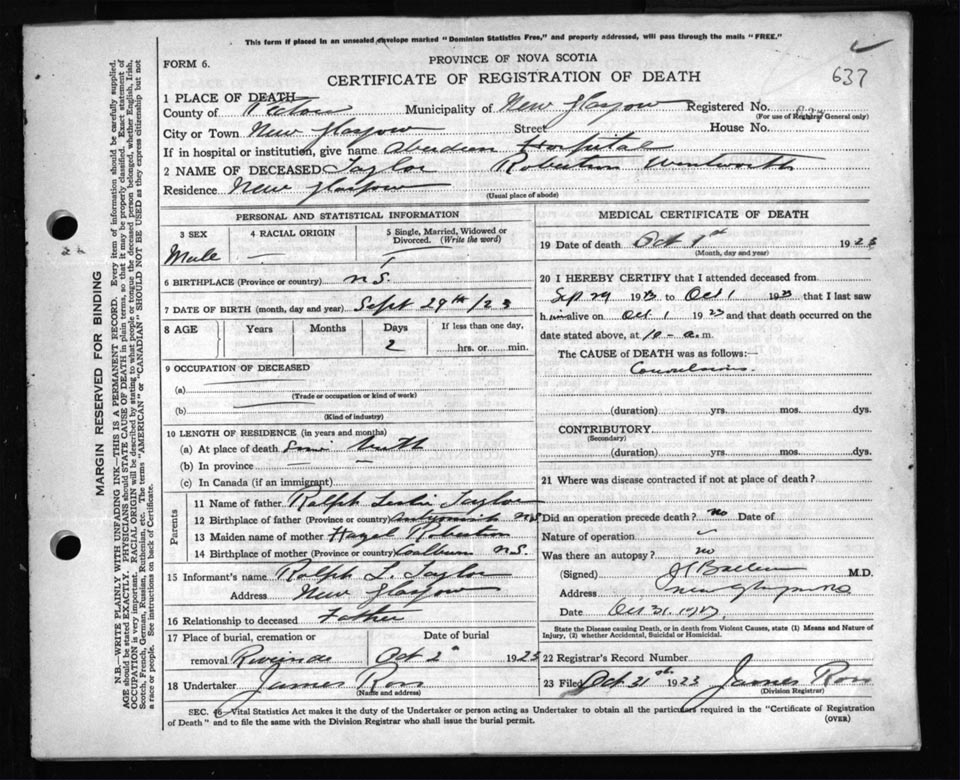 This form if placed in an unsealed envelope marked "Dominion Statistics Free," and properly addressed, will pass through the mails "FREE."
637
FORM 6.
PROVINCE OF NOVA SCOTIA
CERTIFICATE OF REGISTRATION OF DEATH
1 PLACE OF DEATH
County of Pictou Municipality of New Glasgow Registered No.
(For use of Registrar General only)
City or Town New Glasgow Street House No.
If in hospital or institution, give name Aberdeen Hospital
2 NAME OF DECEASED Taylor Robertson Wentworth
Residence New Glasgow
(Usual place of abode)
PERSONAL AND STATISTICAL INFORMATION
3 SEX 4 RACIAL ORIGIN 5 Single, Married, Widowed or Divorced. (Write the word)
Male — —
6 BIRTHPLACE (Province or country) N.S.
7 DATE OF BIRTH (month, day and year) Sept 29th /23
8 AGE Years Months Days If less than one day,
2 hrs. or min.
9 OCCUPATION OF DECEASED
(a)
(Trade or occupation or kind of work)
(b)
(Kind of industry)
10 LENGTH OF RESIDENCE (in years and months)
(a) At place of death Since birth
(b) In province — —
(c) In Canada (if an immigrant)
Parents
11 Name of father Ralph Leslie Taylor
12 Birthplace of father (Province or country) N.S.
13 Maiden name of mother Hazel Robertson
14 Birthplace of mother (Province or country) N.S.
15 Informant's name Ralph L. Taylor
Address New Glasgow
16 Relationship to deceased Father
17 Place of burial, cremation or removal Riverside
Date of burial Oct 2 1923
18 Undertaker James Ross
(Name and address)
MEDICAL CERTIFICATE OF DEATH
19 Date of death Oct 1st 1923
(Month, day and year)
20 I HEREBY CERTIFY that I attended deceased from
Sep 29 1923 to Oct 1 1923 that I last saw
him alive on Oct 1 1923 and that death occurred on the
date stated above, at 10 - a.m.
The CAUSE of DEATH was as follows:—
Convulsions.
(duration) yrs. mos. dys.
CONTRIBUTORY
(Secondary)
(duration) yrs. mos. dys.
21 Where was disease contracted if not at place of death?
Did an operation precede death? no Date of
Nature of operation
Was there an autopsy? no
(Signed) M.D.
Address New Glasgow N.S.
Date Oct 31, 1923
State the Disease causing Death, or in death from Violent Causes, state (1) Means and Nature of Injury, (2) whether Accidental, Suicidal or Homicidal.
22 Registrar's Record Number
23 Filed Oct 31st 1923 James Ross
(Division Registrar)
SEC. 16—Vital Statistics Act makes it the duty of the Undertaker or person acting as Undertaker to obtain all the particulars required in the "Certificate of Registration
of Death" and to file the same with the Division Registrar who shall issue the burial permit.
(OVER)
MARGIN RESERVED FOR BINDING
N.B.—WRITE PLAINLY WITH UNFADING INK—THIS IS A PERMANENT RECORD. Every item of information should be carefully supplied.
AGE should be stated EXACTLY. PHYSICIANS should STATE CAUSE OF DEATH in plain terms, so that it may be properly classified. Exact statement of
OCCUPATION is very important. RACIAL ORIGIN will be described by stating to what people or tongue the deceased person belonged, whether English, Irish,
Scotch, French, German, Russian, Ruthenian, etc. The terms "AMERICAN" or "CANADIAN" SHOULD NOT BE USED as they express citizenship but not
a race or people. See instructions on back of Certificate.